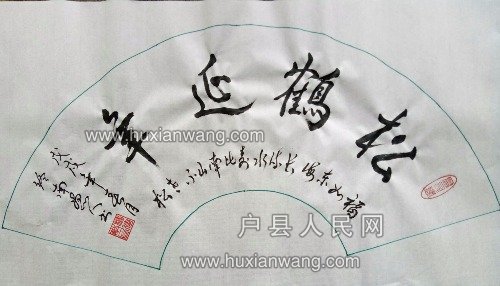 松鶴延年
福如东海长流水寿比南山不老松
戊戌年
www.huxianwang.com
户县人民网
www.huxianwang.com